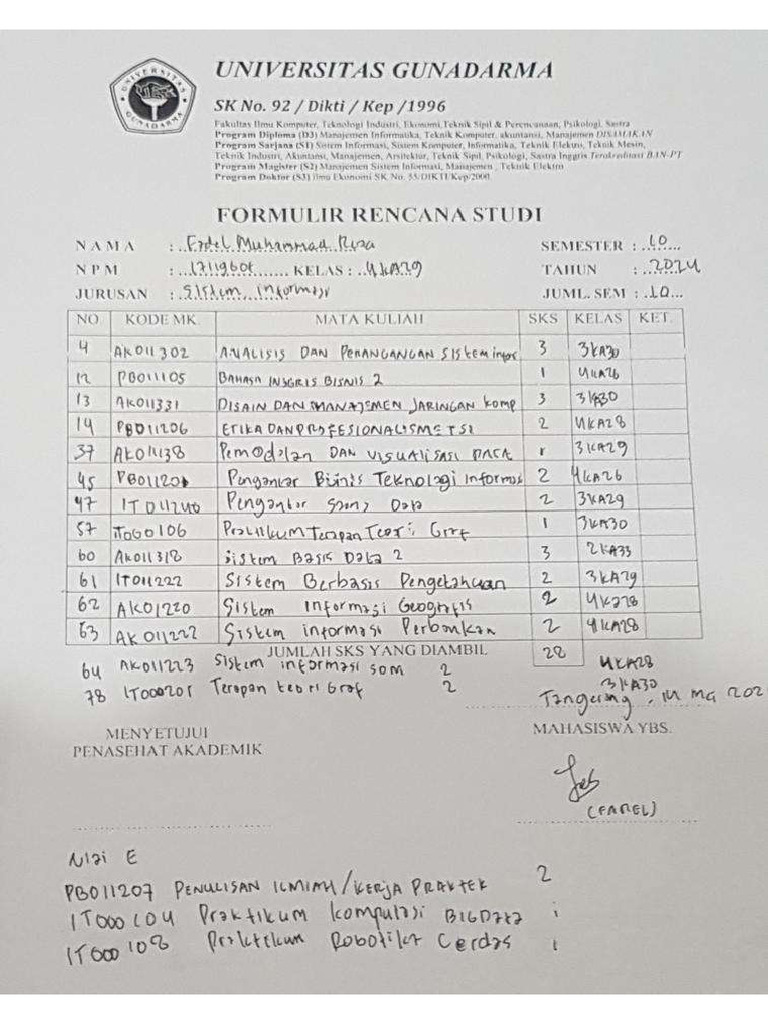 UNIVERSITAS GUNADARMA
UNIVERSITAS GUNADARMA
SK No. 92 / Dikti / Kep /1996
Fakultas Ilmu Komputer, Teknologi Industri, Ekonomi, Teknik Sipil & Perencanaan, Psikologi, Sastra
Program Diploma (D3) Manajemen Informatika, Teknik Komputer, akuntansi, Manajemen DISAMAKAN
Program Sarjana (S1) Sistem Informasi, Sistem Komputer, Informatika, Teknik Elektro, Teknik Mesin,
Teknik Industri, Akuntansi, Manajemen, Arsitektur, Teknik Sipil, Psikologi, Sastra Inggris Terakreditasi BAN-PT
Program Magister (S2) Manajemen Sistem Informasi, Manajemen, Teknik Elektro
Program Doktor (S3) Ilmu Ekonomi SK No. 55/DIKTI/Kep/2000
FORMULIR RENCANA STUDI
NAMA : Muhammad Reza SEMESTER : 10
NPM : KELAS : 4KA29 TAHUN : 2024
JURUSAN : Sistem informasi JUML. SEM : 10
NO KODE MK. MATA KULIAH SKS KELAS KET.
4 AK011302 ANALISIS DAN PERANGANGAN Sistem infor 3 3KA30
12 PB011105 BAHASA INGGRIS BISNIS 2 1 4KA26
13 AK011331 DISAIN DAN MANAJEMEN JARINGAN komp 3 3KA30
14 PB011206 ETIKA DAN PROFESIONALISME TSI 2 4KA28
37 AK011138 Pemodelan DAN VISUALISASI DATA 3KA29
45 PB011201 Pengantar Bisnis Teknologi Informasi 2 4KA26
47 IT011240 Pengantar Sains Data 2 3KA29
57 IT000106 Praktikum Terapan Teori Graf 1 3KA30
60 AK011318 Sistem Basis Data 2 3 2KA33
61 IT011222 Sistem Berbasis Pengetahuan 2 3KA29
62 AK01220 Sistem Informasi Geografis 2 4KA28
63 AK011222 Sistem informasi Perbankan 2 4KA28
JUMLAH SKS YANG DIAMBIL 28
64 AK011223 Sistem informasi SDM 2 4KA28
78 IT000201 Terapan teori Graf 2 3KA30
Tangerang, 14 Mar 202
MENYETUJUI MAHASISWA YBS.
PENASEHAT AKADEMIK
(FAREL)
Nilai E
PB011207 PENULISAN ILMIAH/KERJA PRAKTEK 2
IT000104 Praktikum Komputasi BIGData 1
IT000108 Praktikum Robotika Cerdas 1